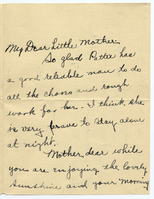 My Dear Little Mother,
So glad Pattie has
a good reliable man to do
all the chores and rough
work for her. I think she
is very brave to stay alone
at night.
Mother dear while
you are enjoying the lovely
sunshine and your morning